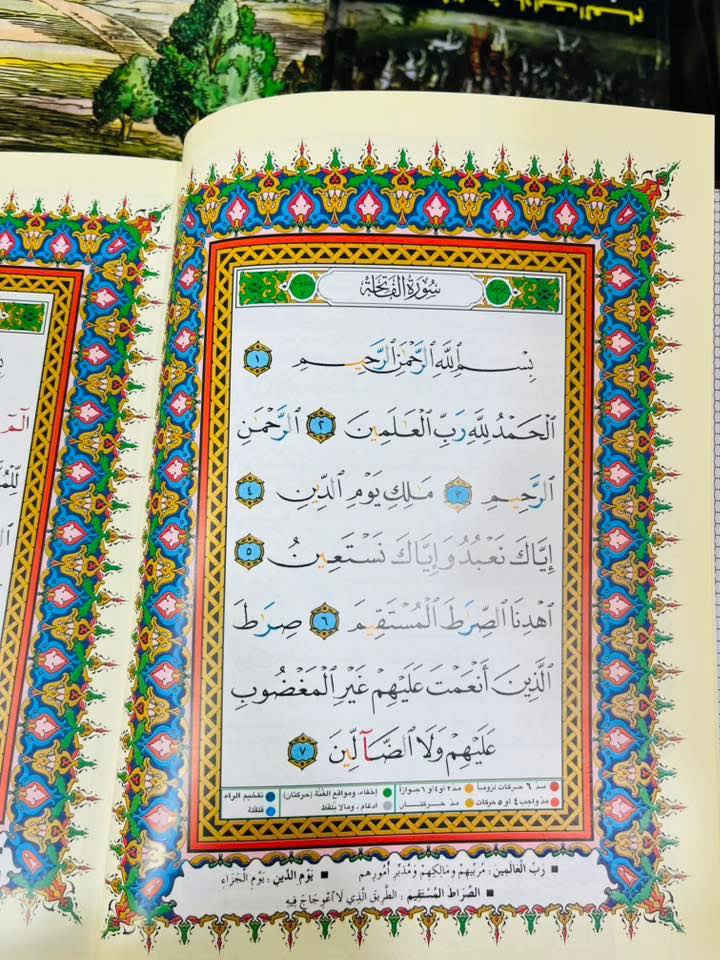 سُورَةُ الفَاتِحَةِ
بِسْمِ ٱللَّهِ ٱلرَّحْمَٰنِ ٱلرَّحِيمِ ١
ٱلْحَمْدُ لِلَّهِ رَبِّ ٱلْعَٰلَمِينَ ٢ ٱلرَّحْمَٰنِ
ٱلرَّحِيمِ ٣ مَٰلِكِ يَوْمِ ٱلدِّينِ ٤
إِيَّاكَ نَعْبُدُ وَإِيَّاكَ نَسْتَعِينُ ٥
ٱهْدِنَا ٱلصِّرَٰطَ ٱلْمُسْتَقِيمَ ٦ صِرَٰطَ
ٱلَّذِينَ أَنْعَمْتَ عَلَيْهِمْ غَيْرِ ٱلْمَغْضُوبِ
عَلَيْهِمْ وَلَا ٱلضَّآلِّينَ ٧
مدّ ٦ حركات لزوماً مدّ ٢ أو ٤ أو ٦ جوازاً إخفاء، ومواقع الغنّة (حركتان) تفخيم الراء
مدّ واجب ٤ أو ٥ حركات مدّ حركتان إدغام، ومالا يُلفظ قلقلة
رَبِّ الْعَالَمِينَ : مُرَبِّيهِمْ وَمَالِكِهِمْ وَمُدَبِّرِ أُمُورِهِم يَوْمِ الدِّينِ : يَوْمِ الْجَزَاءِ
الصِّرَاطَ الْمُسْتَقِيمَ : الطَّرِيقَ الَّذِي لَا اعْوِجَاجَ فِيهِ
الٓمٓ